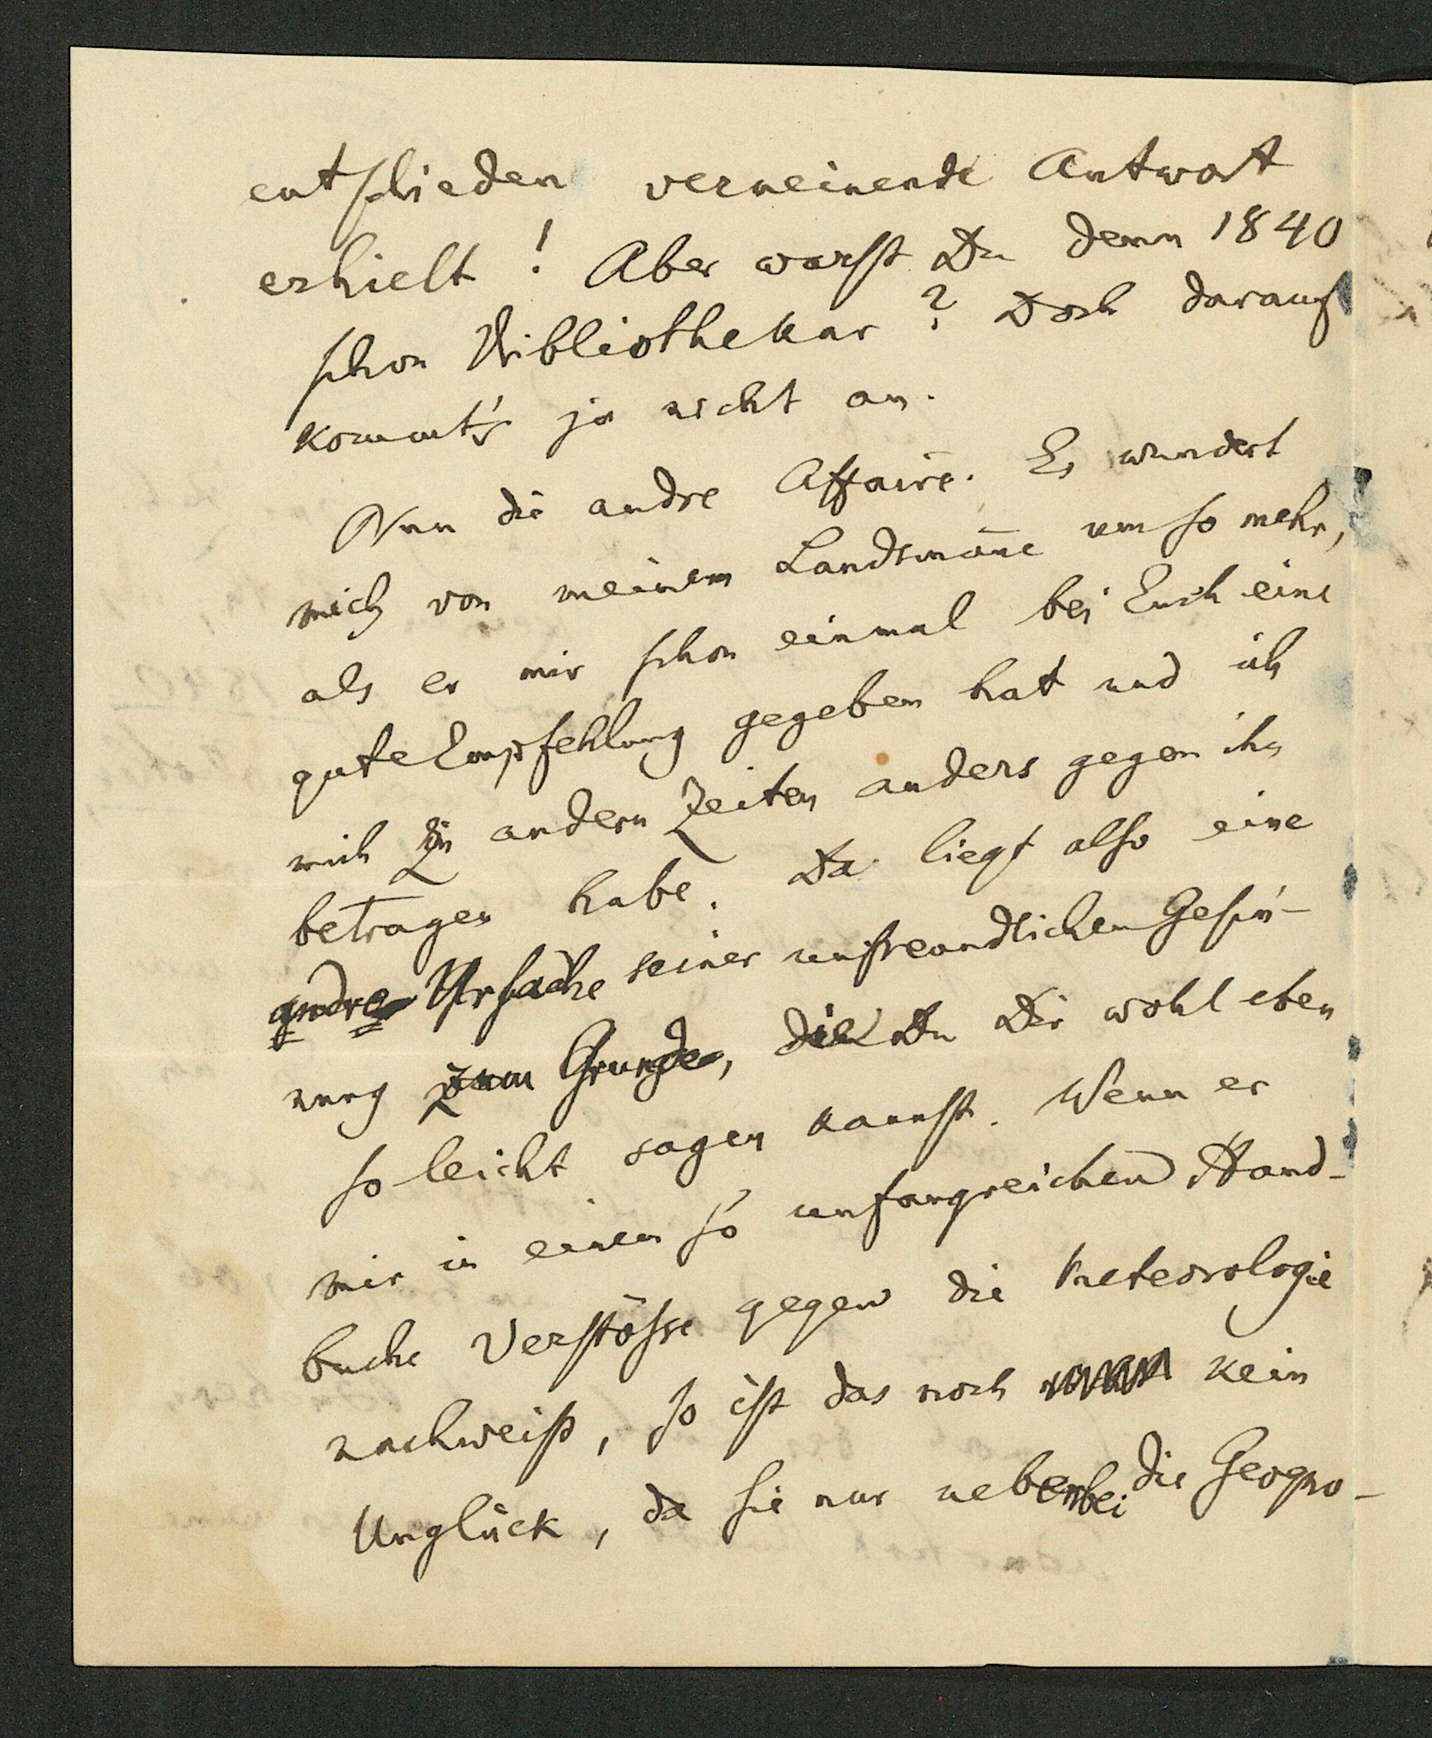 entschieden verneinende Antwort
erhielt! Aber warst Du denn 1840
schon Bibliothekar? Doch darauf
kommt's ja nicht an.
Nun die andre Affaire. Es wundert
mich von meinem Landsmañe um so mehr,
als er mir schon einmal bei Euch eine
gute Empfehlung gegeben hat und ich
mich in andern Zeiten anders gegen ihn
betragen habe. Da liegt also eine
andre Ursache seiner unfreundlichen Gesin̄-
nung zum Grunde, die Du Dir wohl eben
so leicht sagen kannst. Wenn er
mir in einem so umfangreichen Hand-
buche Verstösse gegen die Meteorologie
nachweist, so ist das noch kein
Unglück, da sie nur nebenbei die Geogno-